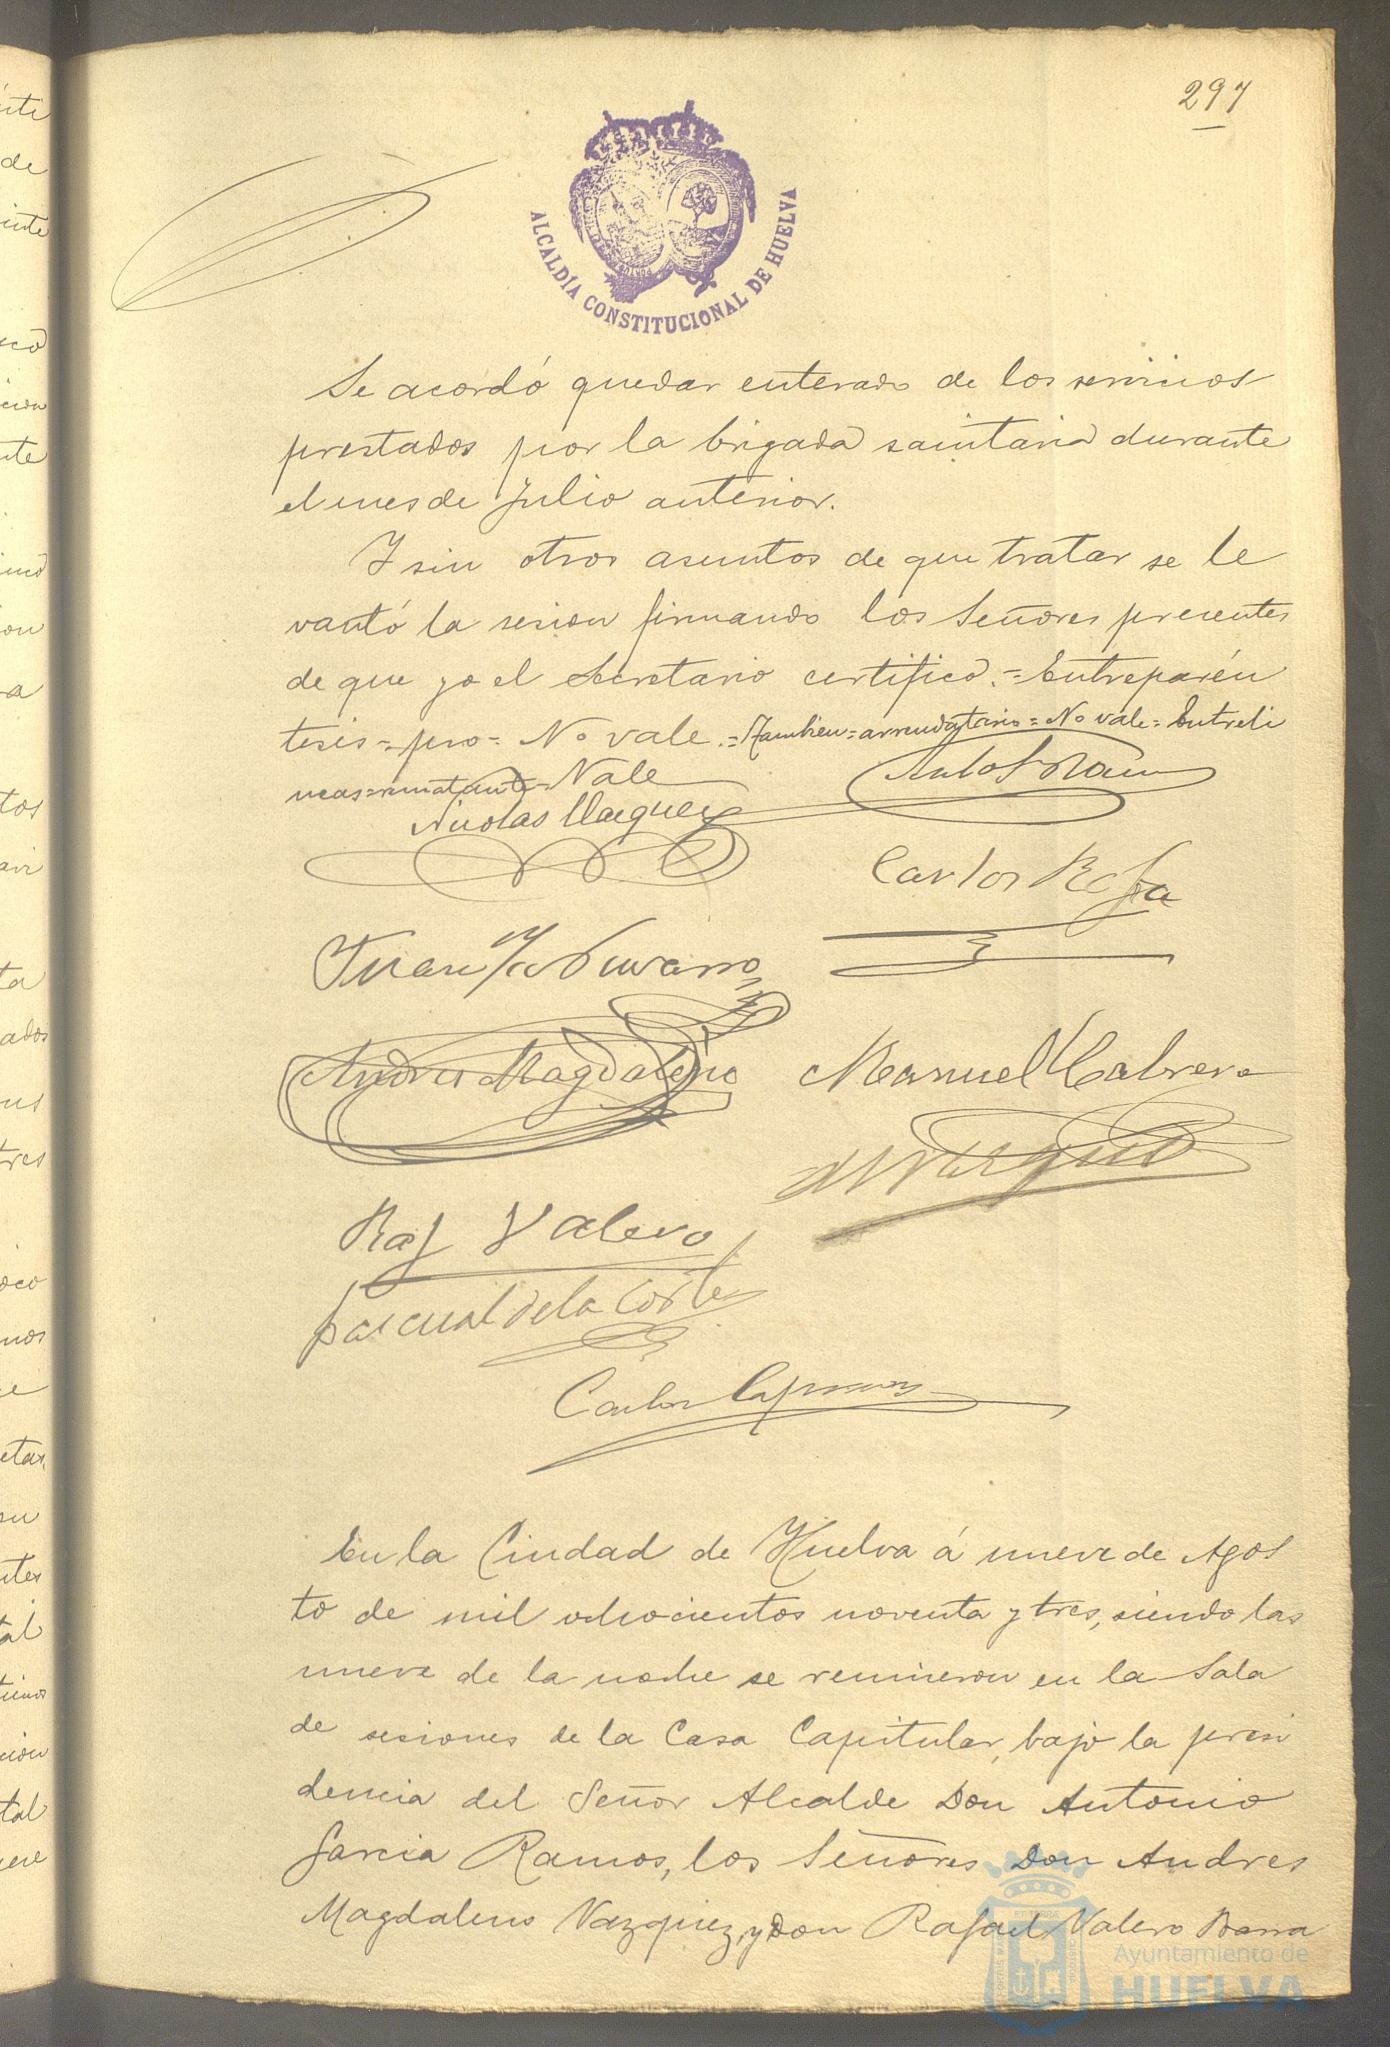 297
ALCALDÍA CONSTITUCIONAL DE HUELVA
Se acordó quedar enterado de los servicios
prestados por la brigada sanitaria durante
el mes de Julio anterior.
Y sin otros asuntos de que tratar se le
vantó la sesion firmando los Señores presentes
de que yo el Secretario certifico.=Entreparén
tesis=pro=No vale.=Tambien=arrendatario=No vale=Entreli
neas=rematante=Vale
Nicolas Vazquez
Carlos Rofa
Juan
Andres Magdaleno
Manuel Cabrera
Raf Valero
Pascual de la Corte
Carlos
En la Ciudad de Huelva á nueve de Agos
to de mil ochocientos noventa y tres, siendo las
nueve de la noche se reunieron en la Sala
de sesiones de la Casa Capitular, bajo la presi
dencia del Señor Alcalde Don Antonio
Garcia Ramos, los Señores Don Andres
Magdaleno Vazquez, y Don Rafael Valero Barra
Ayuntamiento de
HUELVA